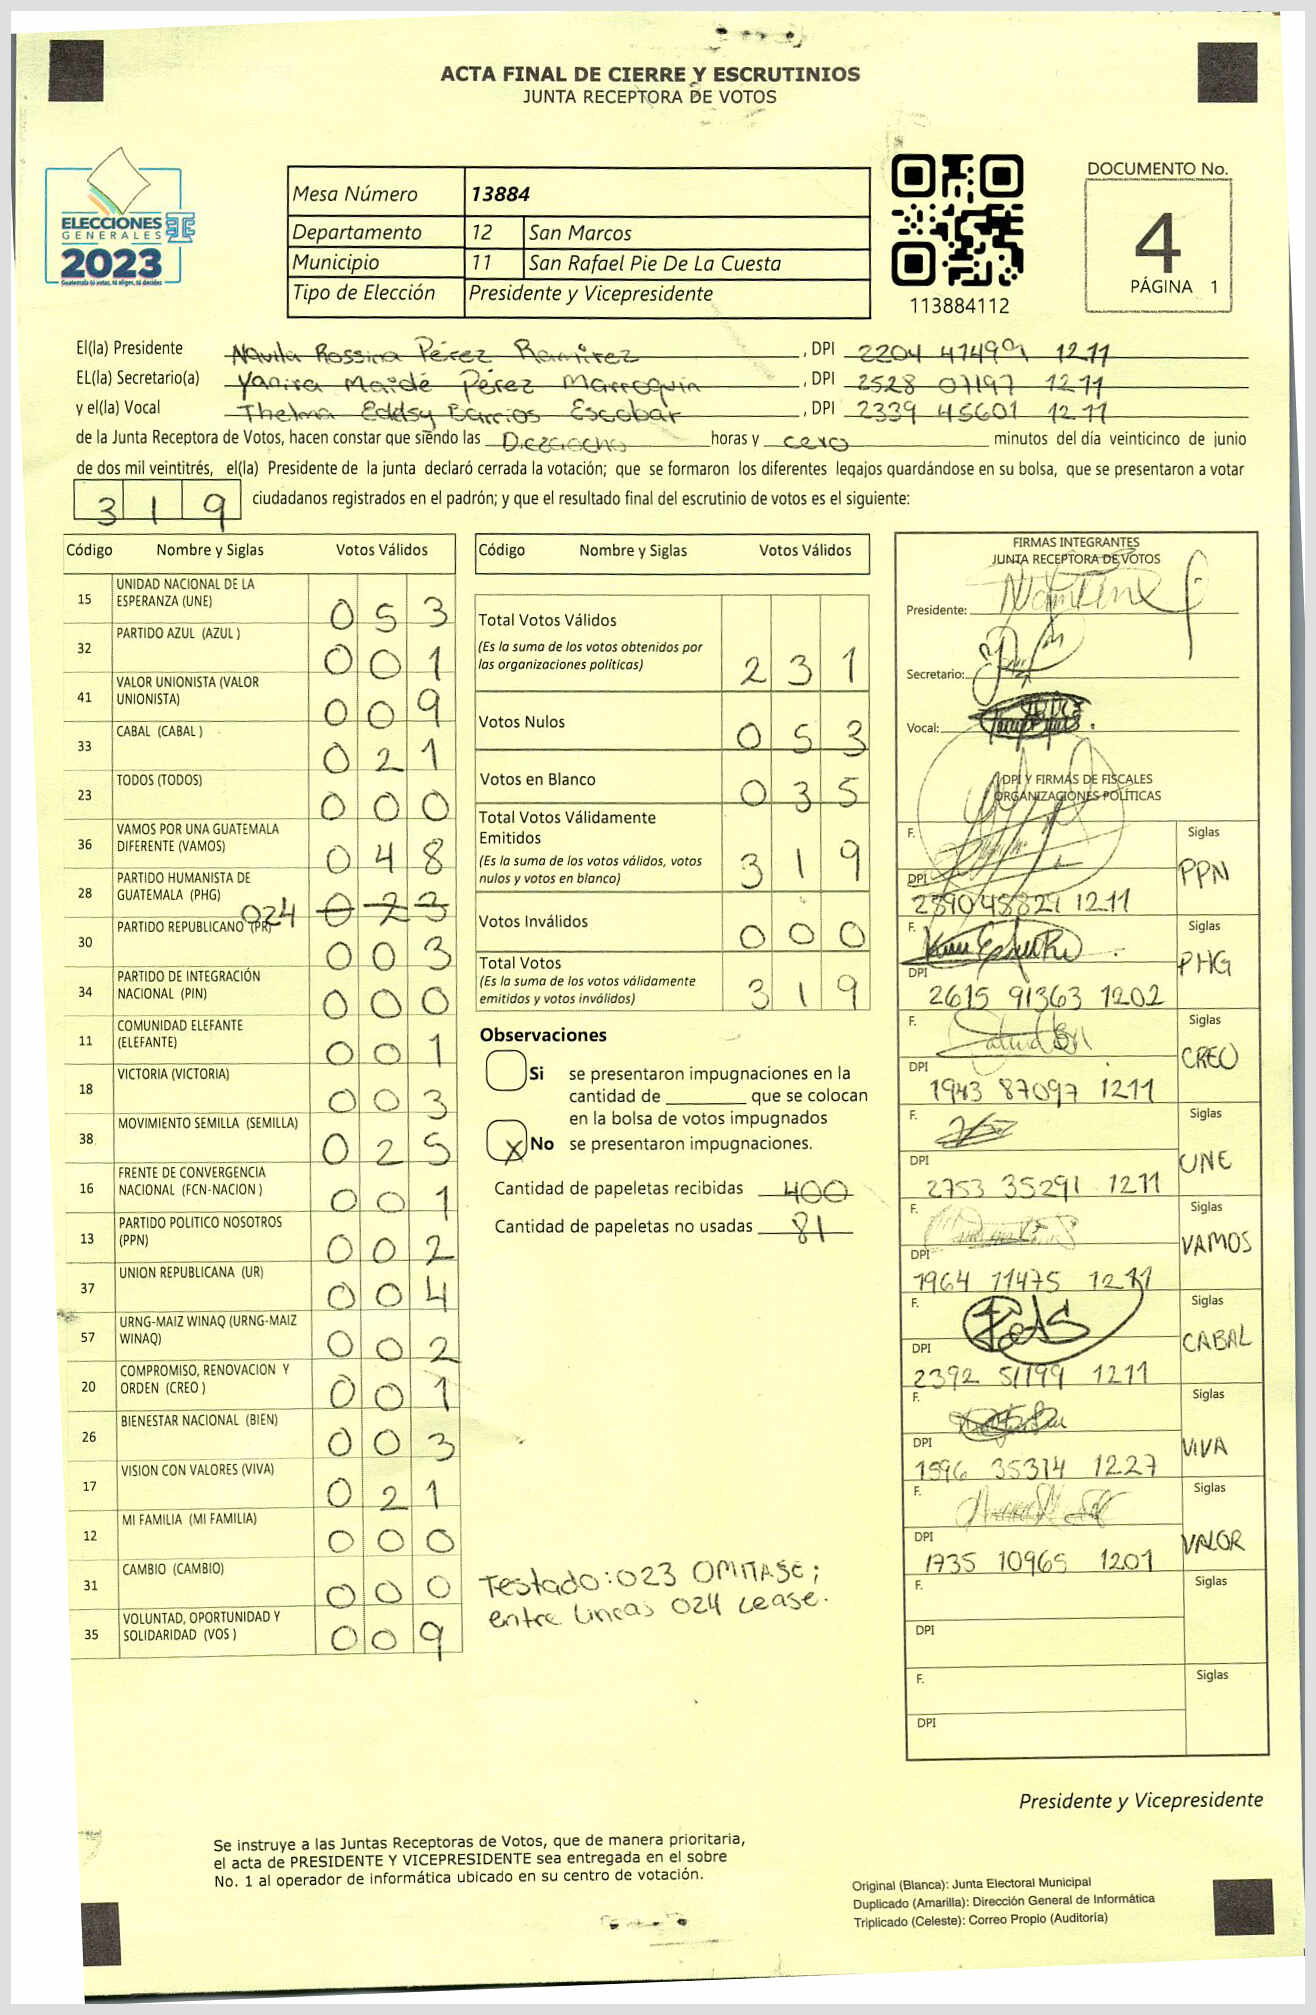 ACTA FINAL DE CIERRE Y ESCRUTINIOS
JUNTA RECEPTORA DE VOTOS
ELECCIONES
GENERALES
2023
Guatemala tú votas, tú eliges, tú decides
Mesa Número 13884
Departamento 12 San Marcos
Municipio 11 San Rafael Pie De La Cuesta
Tipo de Elección Presidente y Vicepresidente
113884112
DOCUMENTO No.
4
PÁGINA 1
El(la) Presidente Rossina Pérez Ramirez , DPI 2204 1211
EL(la) Secretario(a) Yanira Maidé Pérez Marroquin , DPI 2528 07197 1211
y el(la) Vocal Thelma Eddsy Barrios Escobar , DPI 2339 45601 1211
de la Junta Receptora de Votos, hacen constar que siendo las Dieciocho horas y cero minutos del día veinticinco de junio
de dos mil veintitrés, el(la) Presidente de la junta declaró cerrada la votación; que se formaron los diferentes legajos guardándose en su bolsa, que se presentaron a votar
319 ciudadanos registrados en el padrón; y que el resultado final del escrutinio de votos es el siguiente:
Código Nombre y Siglas Votos Válidos
15 UNIDAD NACIONAL DE LA ESPERANZA (UNE) 053
32 PARTIDO AZUL (AZUL ) 001
41 VALOR UNIONISTA (VALOR UNIONISTA) 009
33 CABAL (CABAL ) 021
23 TODOS (TODOS) 000
36 VAMOS POR UNA GUATEMALA DIFERENTE (VAMOS) 048
28 PARTIDO HUMANISTA DE GUATEMALA (PHG) 024 023
30 PARTIDO REPUBLICANO (PR) 003
34 PARTIDO DE INTEGRACIÓN NACIONAL (PIN) 000
11 COMUNIDAD ELEFANTE (ELEFANTE) 001
18 VICTORIA (VICTORIA) 003
38 MOVIMIENTO SEMILLA (SEMILLA) 025
16 FRENTE DE CONVERGENCIA NACIONAL (FCN-NACION ) 001
13 PARTIDO POLITICO NOSOTROS (PPN) 002
37 UNION REPUBLICANA (UR) 004
57 URNG-MAIZ WINAQ (URNG-MAIZ WINAQ) 002
20 COMPROMISO, RENOVACION Y ORDEN (CREO ) 001
26 BIENESTAR NACIONAL (BIEN) 003
17 VISION CON VALORES (VIVA) 021
12 MI FAMILIA (MI FAMILIA) 000
31 CAMBIO (CAMBIO) 000
35 VOLUNTAD, OPORTUNIDAD Y SOLIDARIDAD (VOS ) 009
Código Nombre y Siglas Votos Válidos
Total Votos Válidos
(Es la suma de los votos obtenidos por
las organizaciones políticas) 231
Votos Nulos 053
Votos en Blanco 035
Total Votos Válidamente
Emitidos
(Es la suma de los votos válidos, votos
nulos y votos en blanco) 319
Votos Inválidos 000
Total Votos
(Es la suma de los votos válidamente
emitidos y votos inválidos) 319
Observaciones
Si se presentaron impugnaciones en la
cantidad de ________ que se colocan
en la bolsa de votos impugnados
X No se presentaron impugnaciones.
Cantidad de papeletas recibidas 400
Cantidad de papeletas no usadas 81
Testado: 023 OMITASE;
entre lineas 024 Lease.
FIRMAS INTEGRANTES
JUNTA RECEPTORA DE VOTOS
Presidente:
Secretario:
Vocal:
DPI Y FIRMAS DE FISCALES
ORGANIZACIONES POLÍTICAS
F. Siglas
DPI PPN
2890 48829 1211
F. Siglas
DPI PHG
2615 91363 1202
F. Siglas
DPI CREO
1943 87097 1211
F. Siglas
DPI UNE
2753 35291 1211
F. Siglas
DPI VAMOS
1964 11475 1211
F. Siglas
DPI CABAL
2392 51199 1211
F. Siglas
DPI VIVA
1596 35314 1227
F. Siglas
DPI VALOR
1735 10965 1201
F. Siglas
DPI
F. Siglas
DPI
Presidente y Vicepresidente
Se instruye a las Juntas Receptoras de Votos, que de manera prioritaria,
el acta de PRESIDENTE Y VICEPRESIDENTE sea entregada en el sobre
No. 1 al operador de informática ubicado en su centro de votación.
Original (Blanca): Junta Electoral Municipal
Duplicado (Amarilla): Dirección General de Informática
Triplicado (Celeste): Correo Propio (Auditoría)